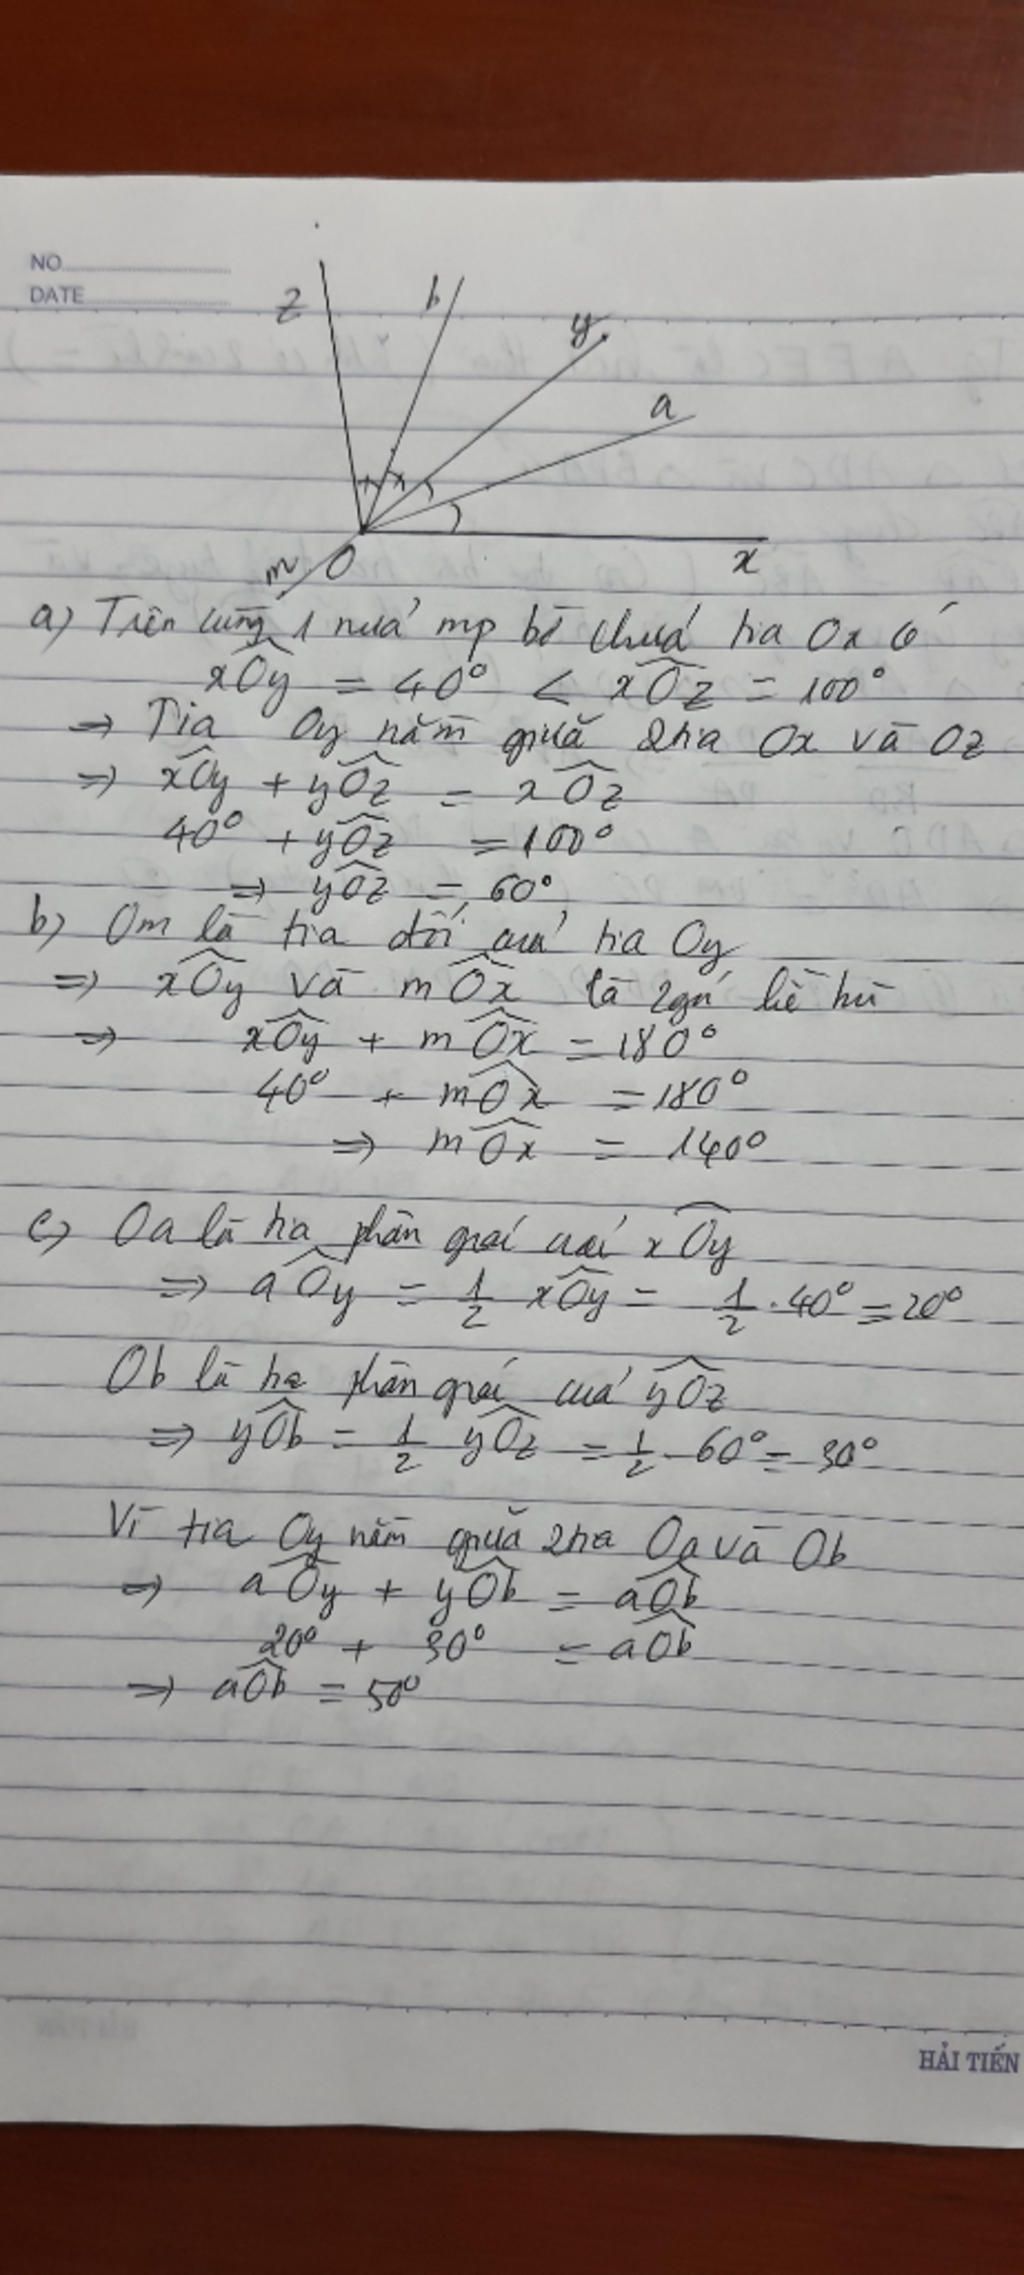 NO
DATE
z b y a
m O x
a) Trên cùng 1 nửa mp bờ chứa tia Ox có
xOy = 40° < xOz = 100°
⇒ Tia Oy nằm giữa 2 tia Ox và Oz
⇒ xOy + yOz = xOz
40° + yOz = 100°
⇒ yOz = 60°
b) Om là tia đối của tia Oy
⇒ xOy và mOx là 2 góc kề bù
⇒ xOy + mOx = 180°
40° + mOx = 180°
⇒ mOx = 140°
c) Oa là tia phân giác của xOy
⇒ aOy = 1/2 xOy = 1/2 . 40° = 20°
Ob là tia phân giác của yOz
⇒ yOb = 1/2 yOz = 1/2 . 60° = 30°
Vì tia Oy nằm giữa 2 tia Oa và Ob
⇒ aOy + yOb = aOb
20° + 30° = aOb
⇒ aOb = 50°
HẢI TIẾN